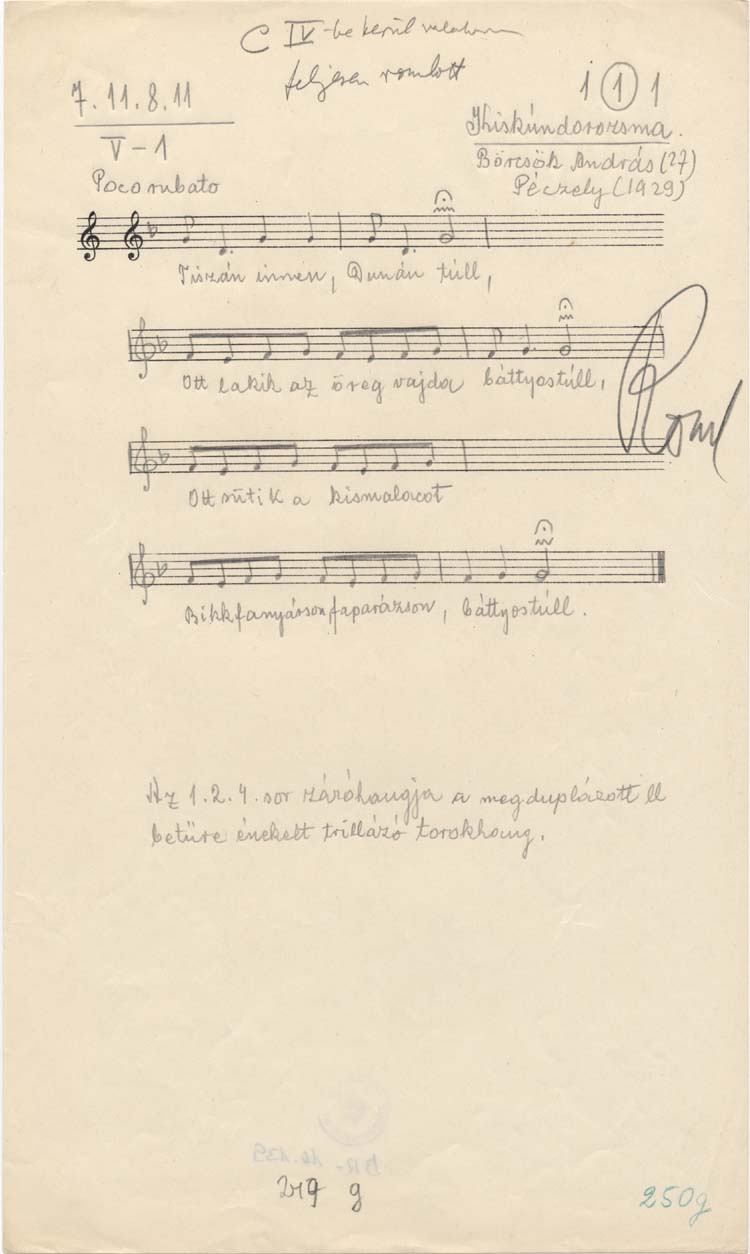 C IV-be kerül valahova
teljesen romlott
7.11.8.11
V-1
1 1 1
Kiskúndorozsma.
Börcsök András (27)
Péczely (1929)
Poco rubato
Tiszán innen, Dunán túll,
Ott lakik az öreg vajda báttyostúll,
Roml
Ott sütik a kismalacot
Bikkfanyárson faparázson, báttyostúll.
Az 1.2.4. sor záróhangja a megduplázott ll
betüre énekelt trillázó torokhang.
219 g
250g